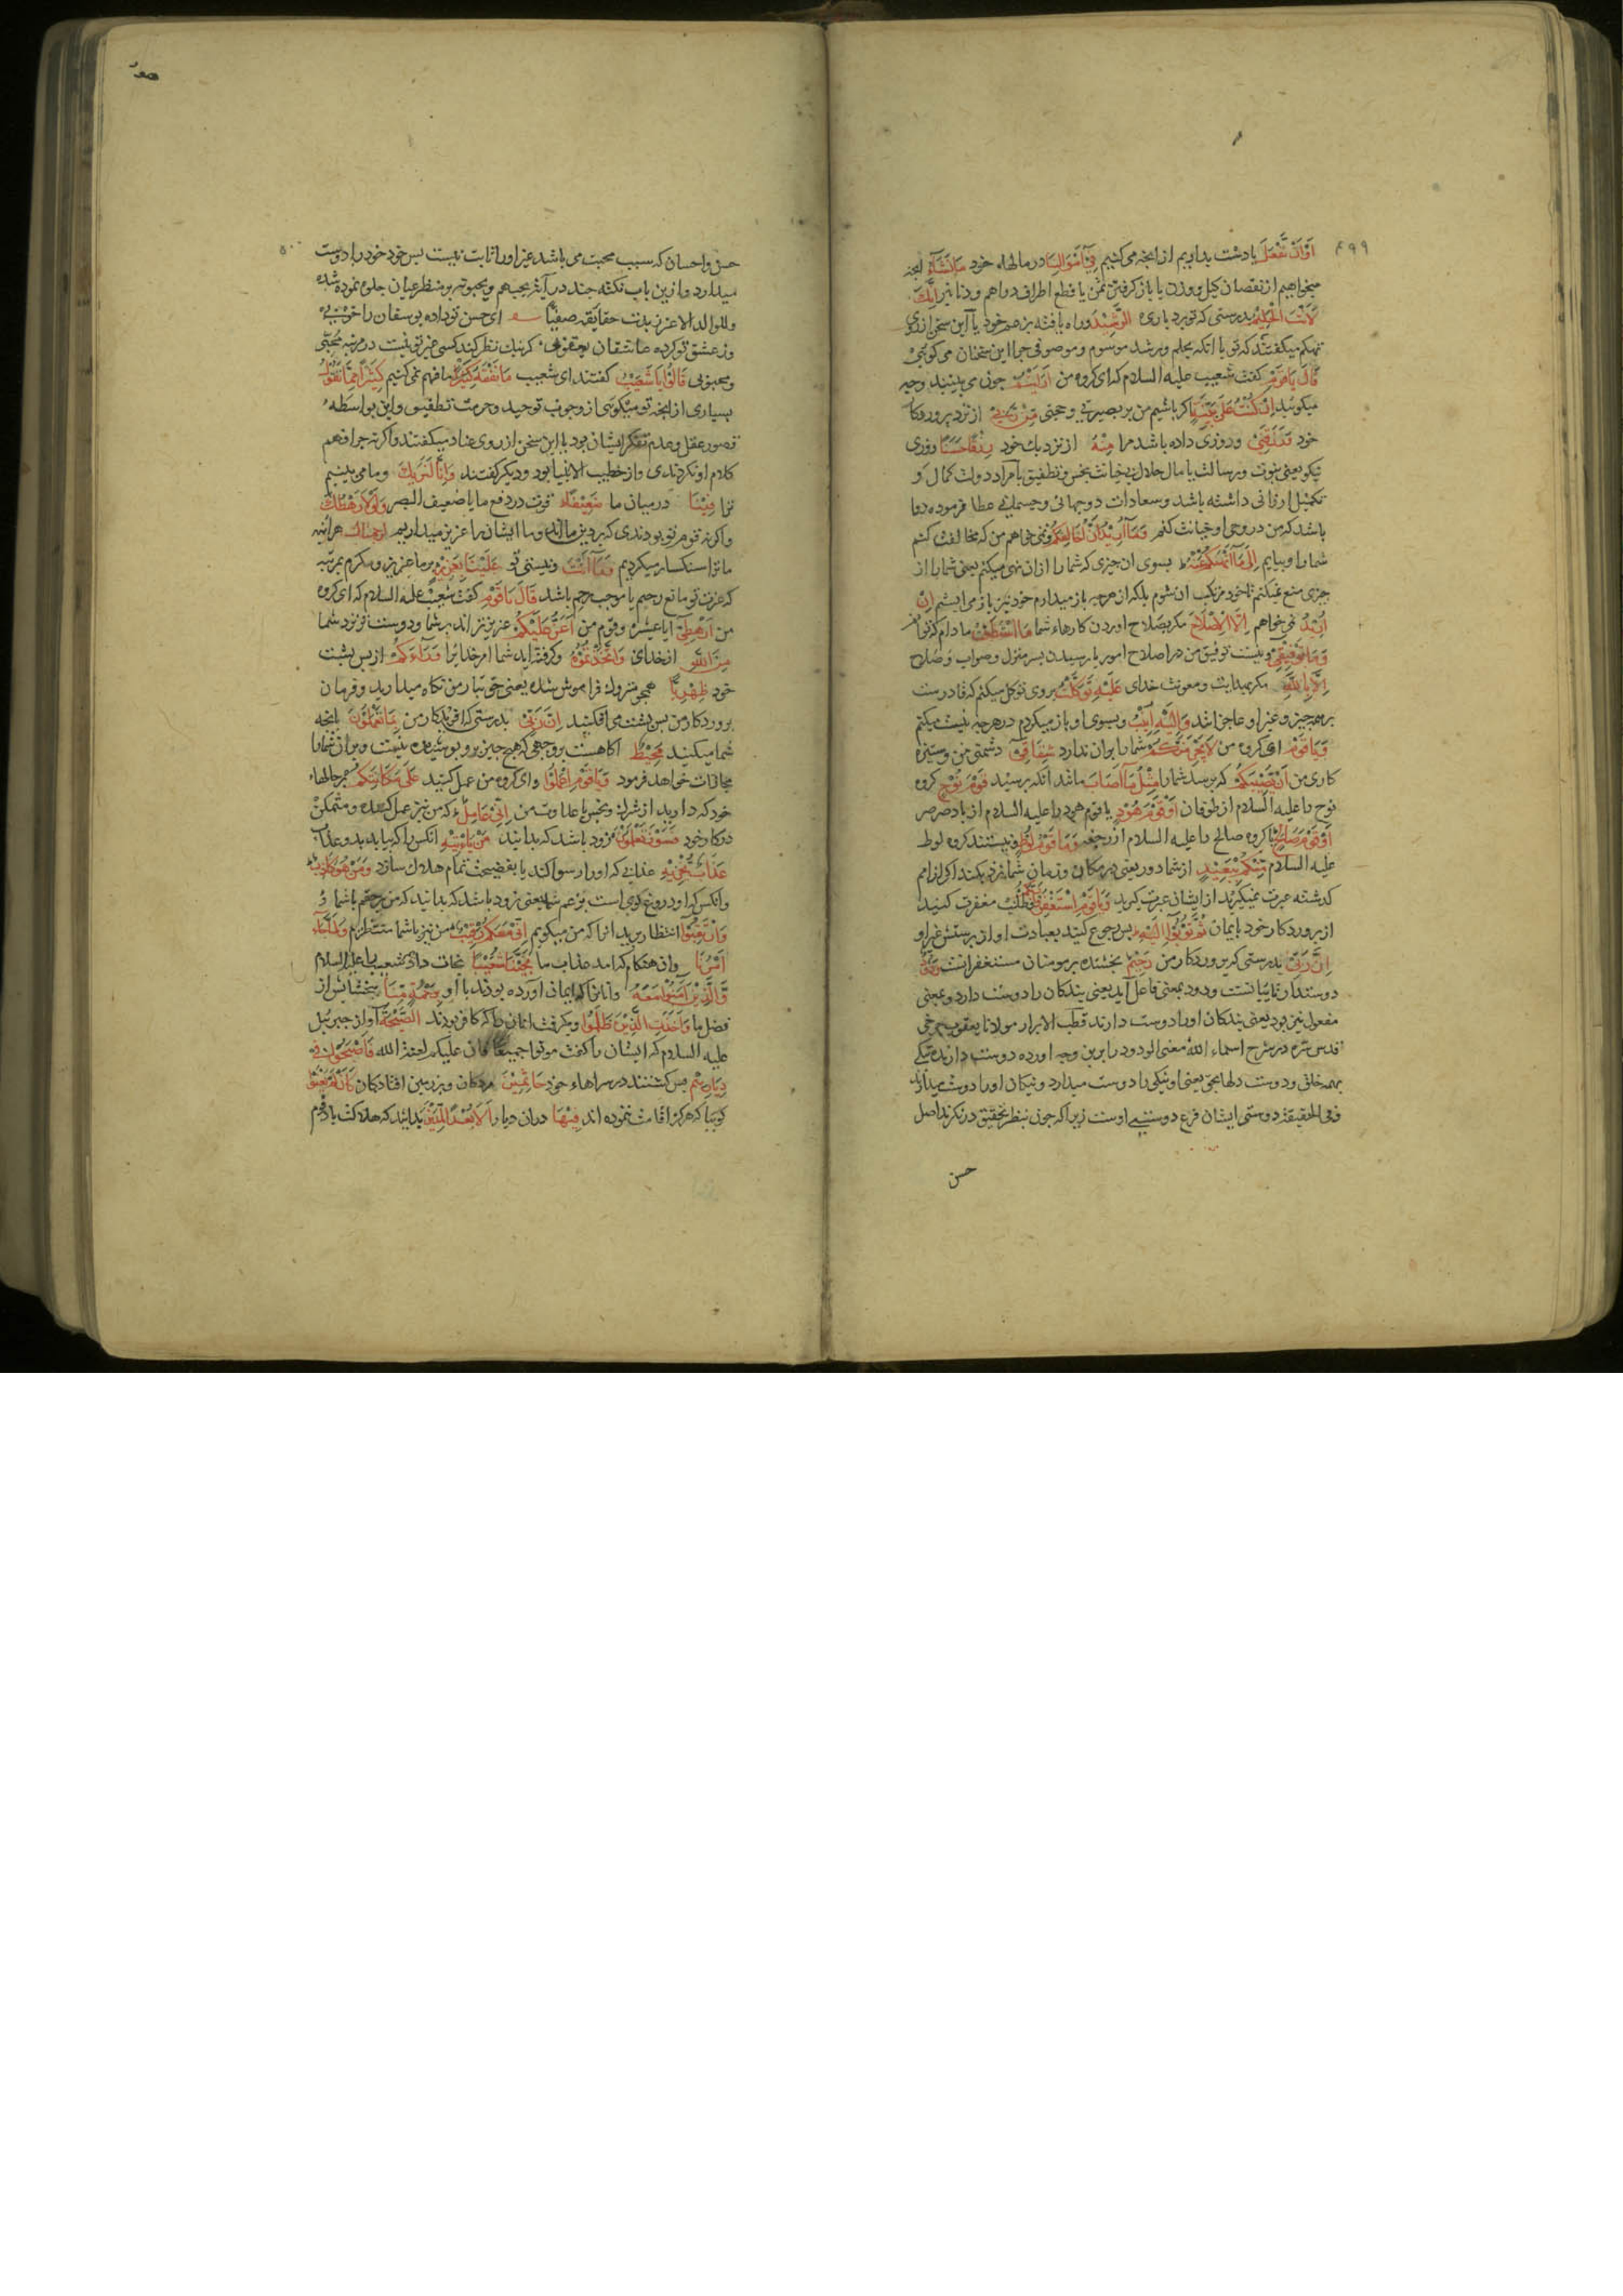 ۴۹۹
اَوْ اَنْ نَفْعَلَ یا دست بداریم از انچه می کنیم فِیْ اَمْوَالِنَا در مالهاء خود مَا نَشَآءُ انچه
میخواهیم از نقصان کیل و وزن یا باز کرفتن ثمن یا قطع اطراف دراهم و دنانیر اِنَّکَ
لَاَنْتَ الْحَلِیْمُ بدرستی که تو بردباری الرَّشِیْدُ و راه یافته بزعم خود یا این سخن از روی
تهکم میکفتند که تو با انکه بحلم و رشد موسوم و موصوفی چرا این سخنان می کوئی
قَالَ یَا قَوْمِ کفت شعیب علیه السلام که ای کروه من اَرَأَیْتُمْ چون می بینید و چه
میکوئید اِنْ کُنْتُ عَلیٰ بَیِّنَةٍ اکر باشیم من بر بصیرتی و حجتی مِنْ رَبِّیْ از نزد پروردکار
خود وَرَزَقَنِیْ و روزی داده باشد مرا مِنْهُ از نزدیک خود رِزْقًا حَسَنًا روزی
نیکو یعنی نبوت و رسالت یا مال حلال بی خیانت بخس و تطفیق یا مراد دولت کمال و
تکمیل ارزانی داشته باشد و سعادات دوجهانی و جسمانی عطا فرموده روا
باشد که من در وحی او خیانت کنم وَمَا اُرِیْدُ اَنْ اُخَالِفَکُمْ و نمی خواهم من که مخالفت کنم
شما را و بیایم اِلیٰ مَا اَنْهٰکُمْ عَنْهُ بسوی ان چیزی که شما را از ان نهی میکنم یعنی شما را از
چیزی منع نمیکنم تا خود مرتکب ان شوم بلکه از هرچه باز میدارم خود نیز باز می ایستم اِنْ
اُرِیْدُ نمی خواهم اِلَّا الْاِصْلَاحَ مکر بصلاح اوردن کارهاء شما مَا اسْتَطَعْتُ مادام که توانم
وَمَا تَوْفِیْقِیْ و نیست توفیق من در اصلاح امور یا رسیدن بسر منزل و صواب و صلاح
اِلَّا بِاللّٰهِ مکر بهدایت و معونت خدای عَلَیْهِ تَوَکَّلْتُ بروی توکل میکنم که قادرست
برهمه چیز و غیر او عاجزانند وَاِلَیْهِ اُنِیْبُ و بسوی او باز میکردم در هرچه نیت میکنم
وَیَا قَوْمِ ای کروه من لَا یَجْرِمَنَّکُمْ شما را بران ندارد شِقَاقِیْ دشمنی من و ستیزه
کاری من اَنْ یُصِیْبَکُمْ که برسد شما را مِثْلُ مَا اَصَابَ مانند انکه برسید قَوْمَ نُوْحٍ کروه
نوح را علیه السلام از طوفان اَوْ قَوْمَ هُوْدٍ یا قوم هود را علیه السلام از باد صرصر
اَوْ قَوْمَ صَالِحٍ یا کروه صالح را علیه السلام از رجفه وَمَا قَوْمُ لُوْطٍ و نیستند کروه لوط
علیه السلام مِنْکُمْ بِبَعِیْدٍ از شما دور یعنی در مکان و زمان شما نزدیکند اکر از امم
کذشته عبرت نمیکیرند از ایشان عبرت کیرید وَیَا قَوْمِ اسْتَغْفِرُوْا رَبَّکُمْ و طلب مغفرت کنید
از پروردکار خود بایمان ثُمَّ تُوْبُوْا اِلَیْهِ پس رجوع کنید بعبادت او از پرستش غیر او
اِنَّ رَبِّیْ بدرستی که پروردکار من رَحِیْمٌ بخشنده بر مومنان مستغفرانست وَدُوْدٌ
دوستدار تائبانست ودود بمعنی فاعل آید یعنی بندکان را دوست دارد و بمعنی
مفعول نیز بود یعنی بندکان او را دوست دارند قطب الابرار مولانا یعقوب چرخی
قدس سره در شرح اسماء الله معنی الودود را برین وجه اورده دوست دارنده نیکی
بهمه خلق و دوست دلهابحق یعنی او نیکی را دوست میدارد و نیکان او را دوست میدارند
و فی الحقیقة دوستی ایشان فرع دوستی اوست زیرا که چون بنظر تحقیق در نکرند اصل
حسن
هود
۵۰۰
حسن و احسان که سبب محبت می باشد غیر او را ثابت نیست پس خود خود را دوست
میدارد و ازین باب نکته چند در آیة یحبهم و یحبونه بر منظر عیان جلوه نموده شده
وللوالد الاعز زیدت حقایقه صفیا ای حسن تو داده یوسفان را خوبی
وز عشق تو کرده عاشقان یعقوبی کر نیک نظر کند کسی غیر تو نیست در مرتبه محبی
و محبوبی قَالُوْا یَا شُعَیْبُ کفتند ای شعیب مَا نَفْقَهُ کَثِیْرًا ما فهم نمی کنیم کَثِیْرًا مِمَّا تَقُوْلُ
بسیاری از انچه تو میکوئی از وجوب توحید و حرمت تطفیق و این بواسطه
قصور عقل و عدم تفکر ایشان بود یا این سخن از روی عناد میکفتند و اکرنه چرا فهم
کلام او نکردندی و از خطیب الانبیا بود و دیکر کفتند وَاِنَّا لَنَرٰیکَ و ما می بینیم
ترا فِیْنَا در میان ما ضَعِیْفًا قوت در دفع ما یا ضعیف البصر وَلَوْلَا رَهْطُکَ
و اکرنه قوم تو بودندی که بر دین مااند و ما ایشان را عزیز میداریم لَرَجَمْنَاکَ هراینه
ما ترا سنکسار میکردیم وَمَا اَنْتَ و نیستی تو عَلَیْنَا بِعَزِیْزٍ بر ما عزیز و مکرم بمرتبه
که عزت تو مانع رحیم یا موجب رحم باشد قَالَ یَا قَوْمِ کفت شعیب علیه السلام که ای کروه
من اَرَهْطِیْ آیا عشیره و قوم من اَعَزُّ عَلَیْکُمْ عزیزتر اند بر شما و دوست تر نزد شما
مِنَ اللّٰهِ از خدای وَاتَّخَذْتُمُوْهُ و کرفته اید شما امر خدا یرا وَرَآءَکُمْ از پس پشت
خود ظِهْرِیًّا همچو متروک فراموش شده یعنی حق تبار من نکاه میدارید و فرمان
پروردکار من پس پشت می افکنید اِنَّ رَبِّیْ بدرستی که افریدکار من بِمَا تَعْمَلُوْنَ بانچه
شما میکنید مُحِیْطٌ آکاهست بروجهی که هیچ چیز برو پوشیده نیست و بران شما را
مجازات خواهد فرمود وَیَا قَوْمِ اعْمَلُوْا و ای کروه من عمل کنید عَلیٰ مَکَانَتِکُمْ بر حالهاء
خود که دارید از شرک و بخس یا عداوت من اِنِّیْ عَامِلٌ که من نیز عمل کننده و متمکن
در کار خود فَسَوْفَ تَعْلَمُوْنَ پس زود باشد که بدانید مَنْ یَأْتِیْهِ انکس را که بیاید بدو عذاب
عَذَابٌ یُخْزِیْهِ عذابی که او را رسوا کند یا بفضیحت تمام هلاک سازد وَمَنْ هُوَ کَاذِبٌ
و انکس که او دروغ کوی است بزعم شما یعنی زود باشد که بدانید که من برحقم یا شما
وَارْتَقِبُوْا انتظار برید انرا که من میکویم اِنِّیْ مَعَکُمْ رَقِیْبٌ من نیز با شما منتظرم وَلَمَّا جَآءَ
اَمْرُنَا و ان هنکام که امد عذاب ما نَجَّیْنَا شُعَیْبًا نجات دادیم شعیب را علیه السلام
وَّالَّذِیْنَ اٰمَنُوْا مَعَهُ و انانرا که ایمان آورده بودند با او بِرَحْمَةٍ مِّنَّا ببخشایش از
فضل ما وَاَخَذَتِ الَّذِیْنَ ظَلَمُوا و بکرفت انان را که کافر بودند الصَّیْحَةُ آواز جبرئیل
علیه السلام که ایشان را کفت موتوا جمیعا فان علیکم لعنة الله فَاَصْبَحُوْا فِیْ
دِیَارِهِمْ پس کشتند در سراهاء خود جَاثِمِیْنَ مردکان و بر زمین افتادکان کَاَنْ لَمْ یَغْنَوْا
کویا که هرکز اقامت ننموده اند فِیْهَا در ان دیار اَلَا بُعْدًا لِمَدْیَنَ بدانید که هلاکت باد قوم